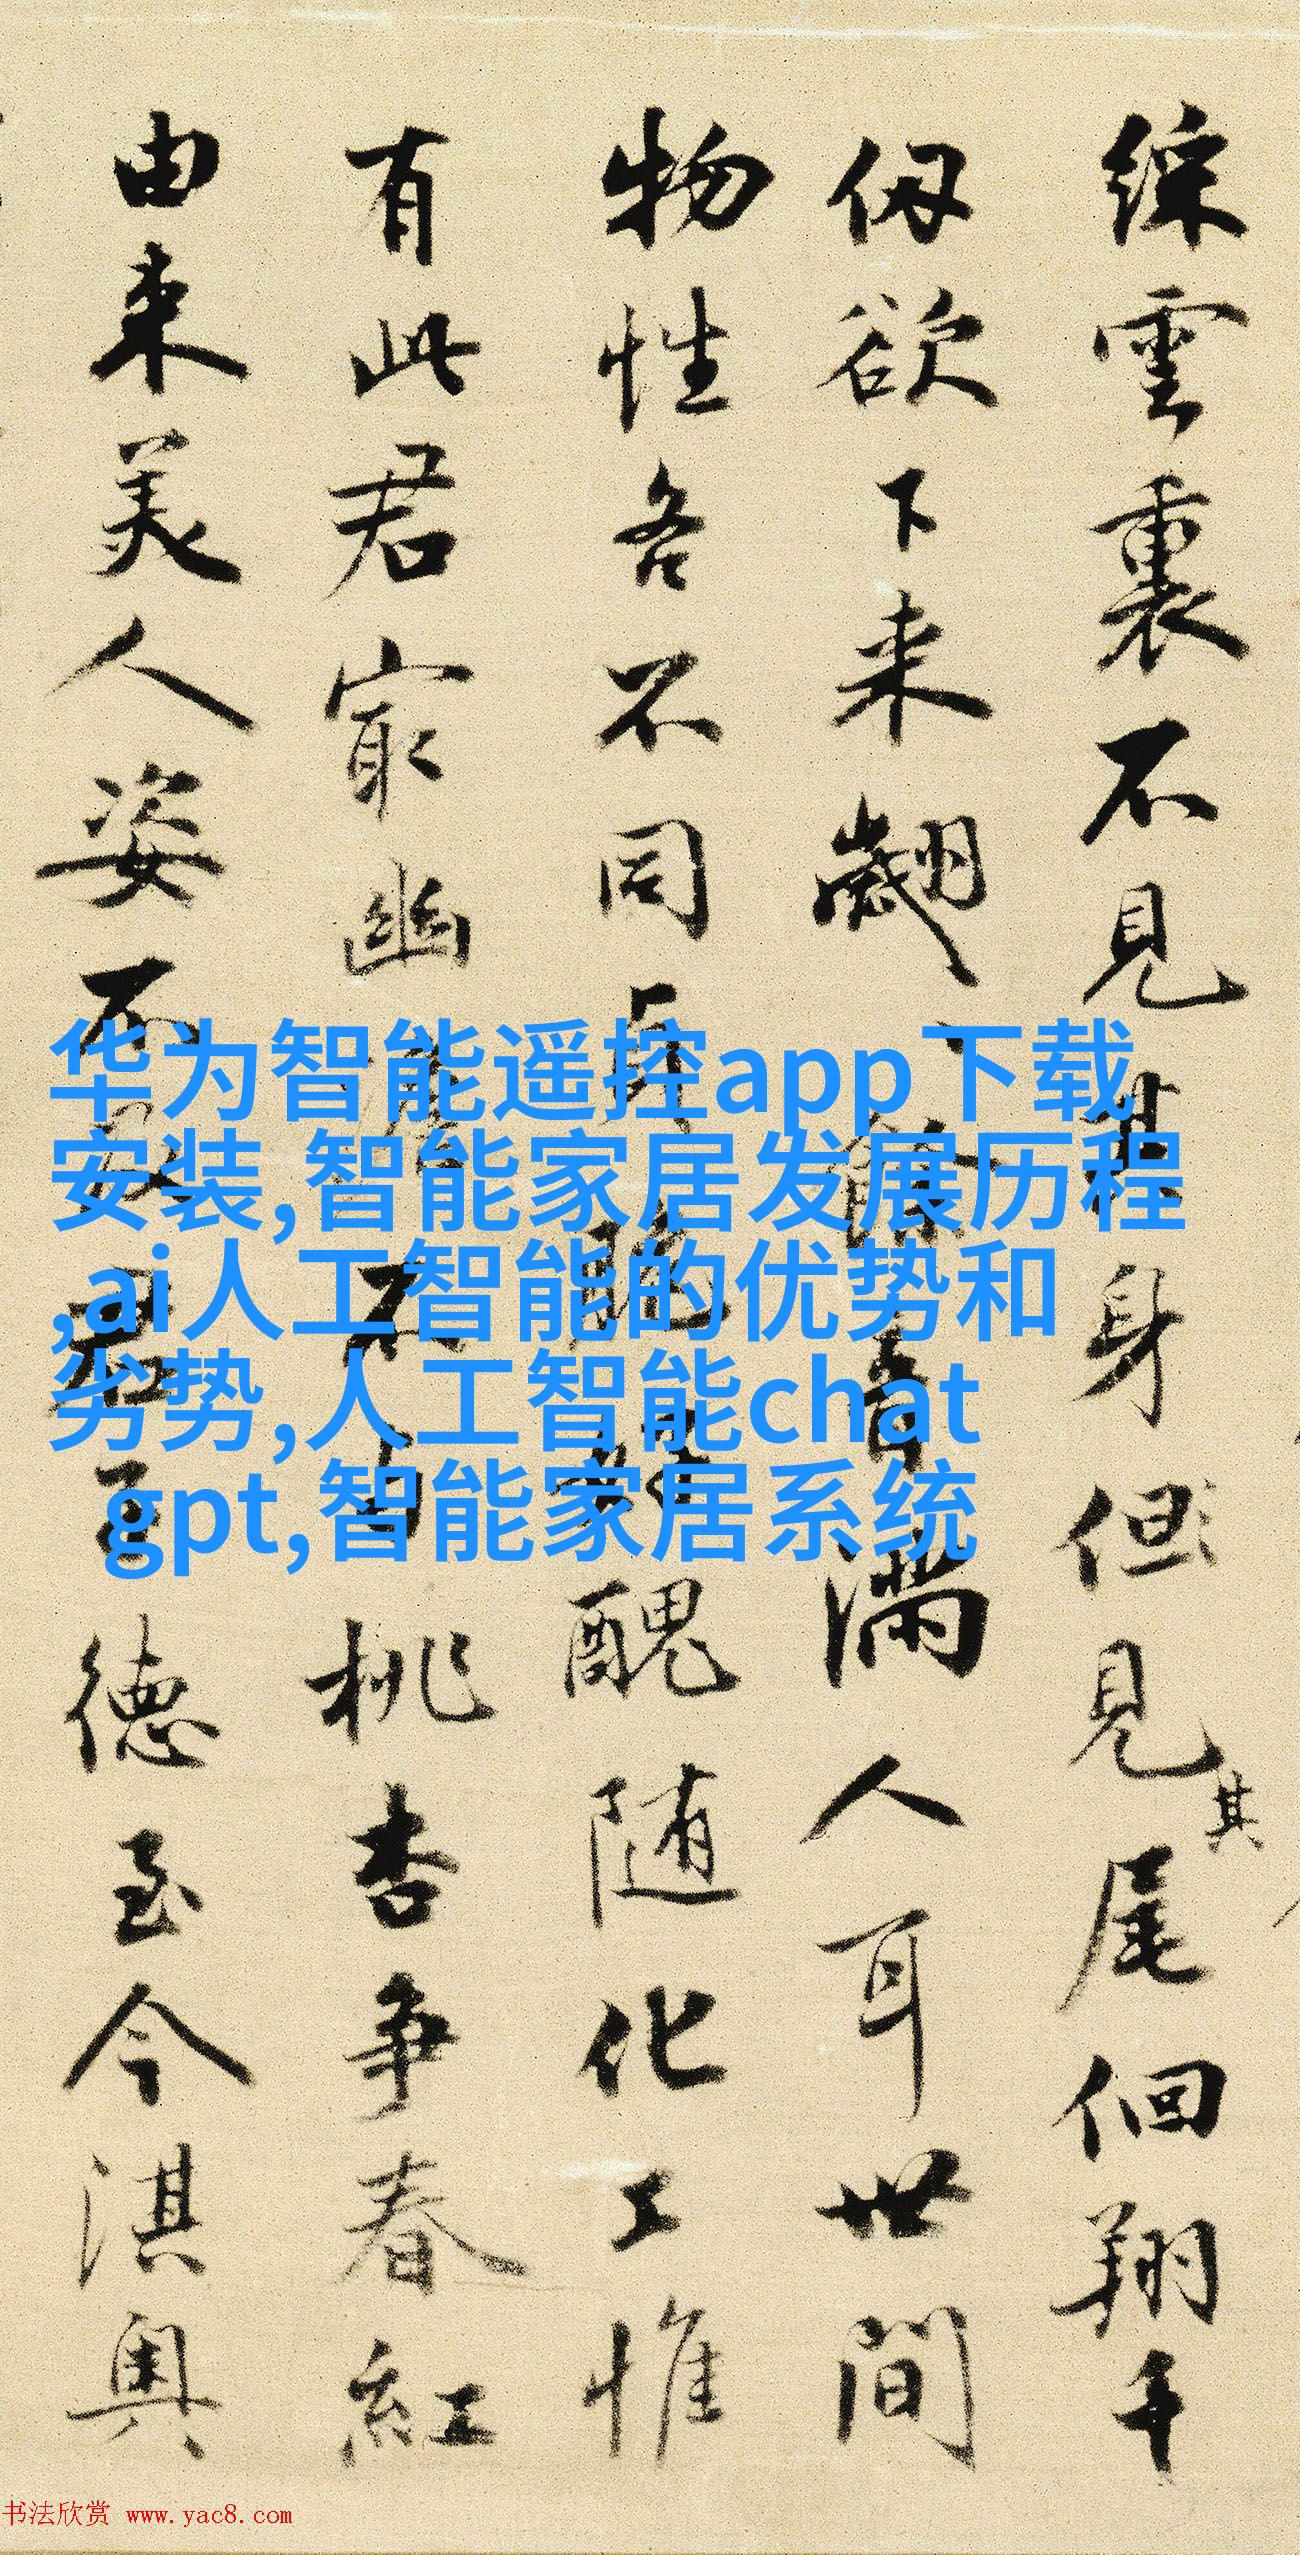 綵雲裏不見其身但見其尾佪翔千
仭欲下来翽餘音滿人耳世間
物性各不同醜随化工惟
有此君寂幽不桃杏争春紅
由来美人姿不君子德至今淇奥
华为智能遥控app下载
安装,智能家居发展历程
,ai人工智能的优势和
劣势,人工智能chat
gpt,智能家居系统
书法欣赏 www.yac8.com